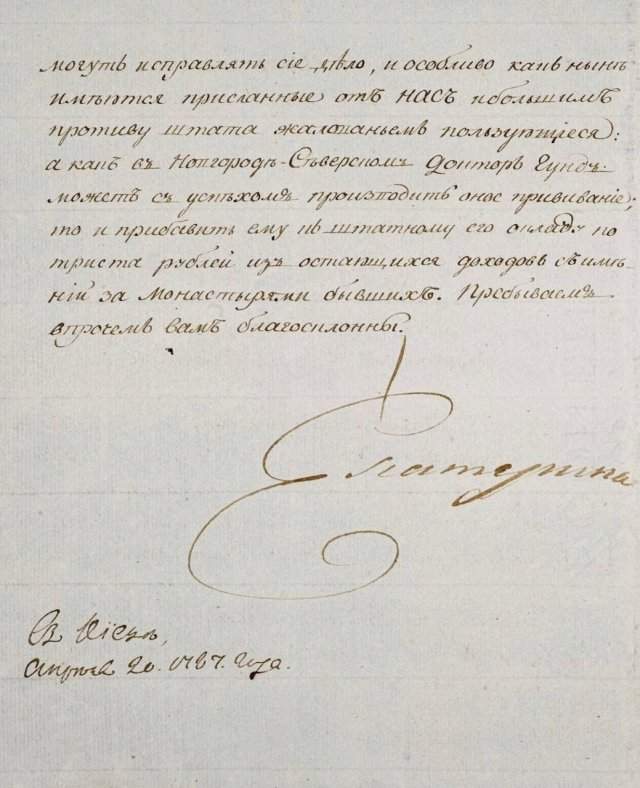 могутъ исправлять сіе дѣло, и особливо какъ нынѣ
имѣются присланные отъ НАСЪ и большимъ
противу штата жалованьемъ пользующіеся:
а какъ въ Новгородѣ-Сѣверскомъ Докторъ Гундъ
можетъ съ успѣхомъ производить оное прививаніе;
то и прибавить ему къ штатному его окладу по
триста рублей изъ остающихся доходовъ съ имѣ-
ній за Монастырями бывшихъ. Пребываемъ
впрочемъ вамъ благосклонны.
Екатерина
Въ Кіевѣ,
Апрѣля 20. 1787. года.